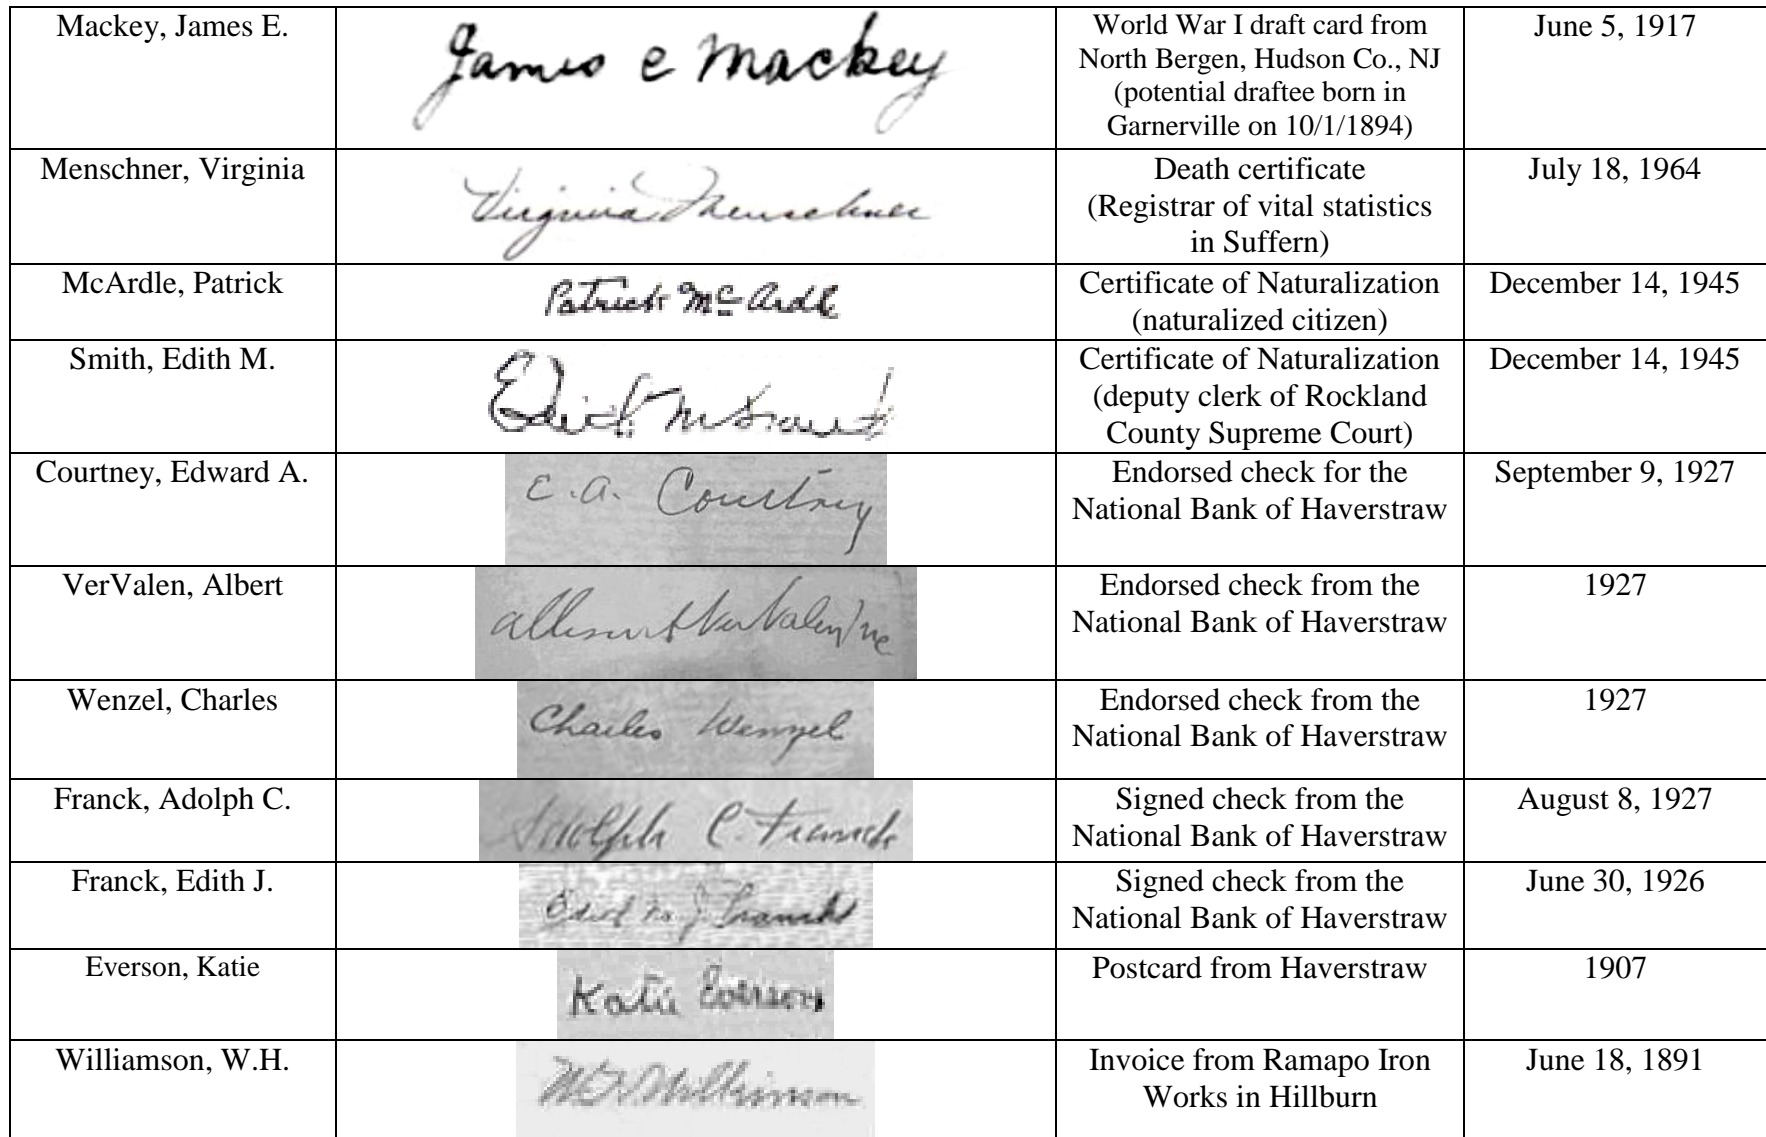 Mackey, James E.
James e Mackey
World War I draft card from
North Bergen, Hudson Co., NJ
(potential draftee born in
Garnerville on 10/1/1894)
June 5, 1917
Menschner, Virginia
Virginia Menschner
Death certificate
(Registrar of vital statistics
in Suffern)
July 18, 1964
McArdle, Patrick
Patrick Mc Ardle
Certificate of Naturalization
(naturalized citizen)
December 14, 1945
Smith, Edith M.
Certificate of Naturalization
(deputy clerk of Rockland
County Supreme Court)
December 14, 1945
Courtney, Edward A.
E. A. Courtney
Endorsed check for the
National Bank of Haverstraw
September 9, 1927
VerValen, Albert
Endorsed check from the
National Bank of Haverstraw
1927
Wenzel, Charles
Charles Wenzel
Endorsed check from the
National Bank of Haverstraw
1927
Franck, Adolph C.
Adolph C. Franck
Signed check from the
National Bank of Haverstraw
August 8, 1927
Franck, Edith J.
J. Franck
Signed check from the
National Bank of Haverstraw
June 30, 1926
Everson, Katie
Katie Everson
Postcard from Haverstraw
1907
Williamson, W.H.
Invoice from Ramapo Iron
Works in Hillburn
June 18, 1891